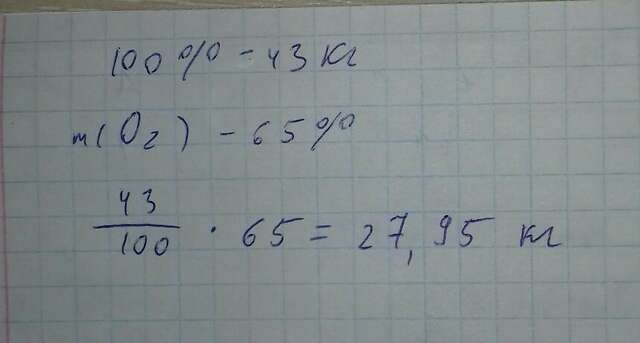 100% - 43 кг
m(O₂) - 65%
43/100 · 65 = 27,95 кг